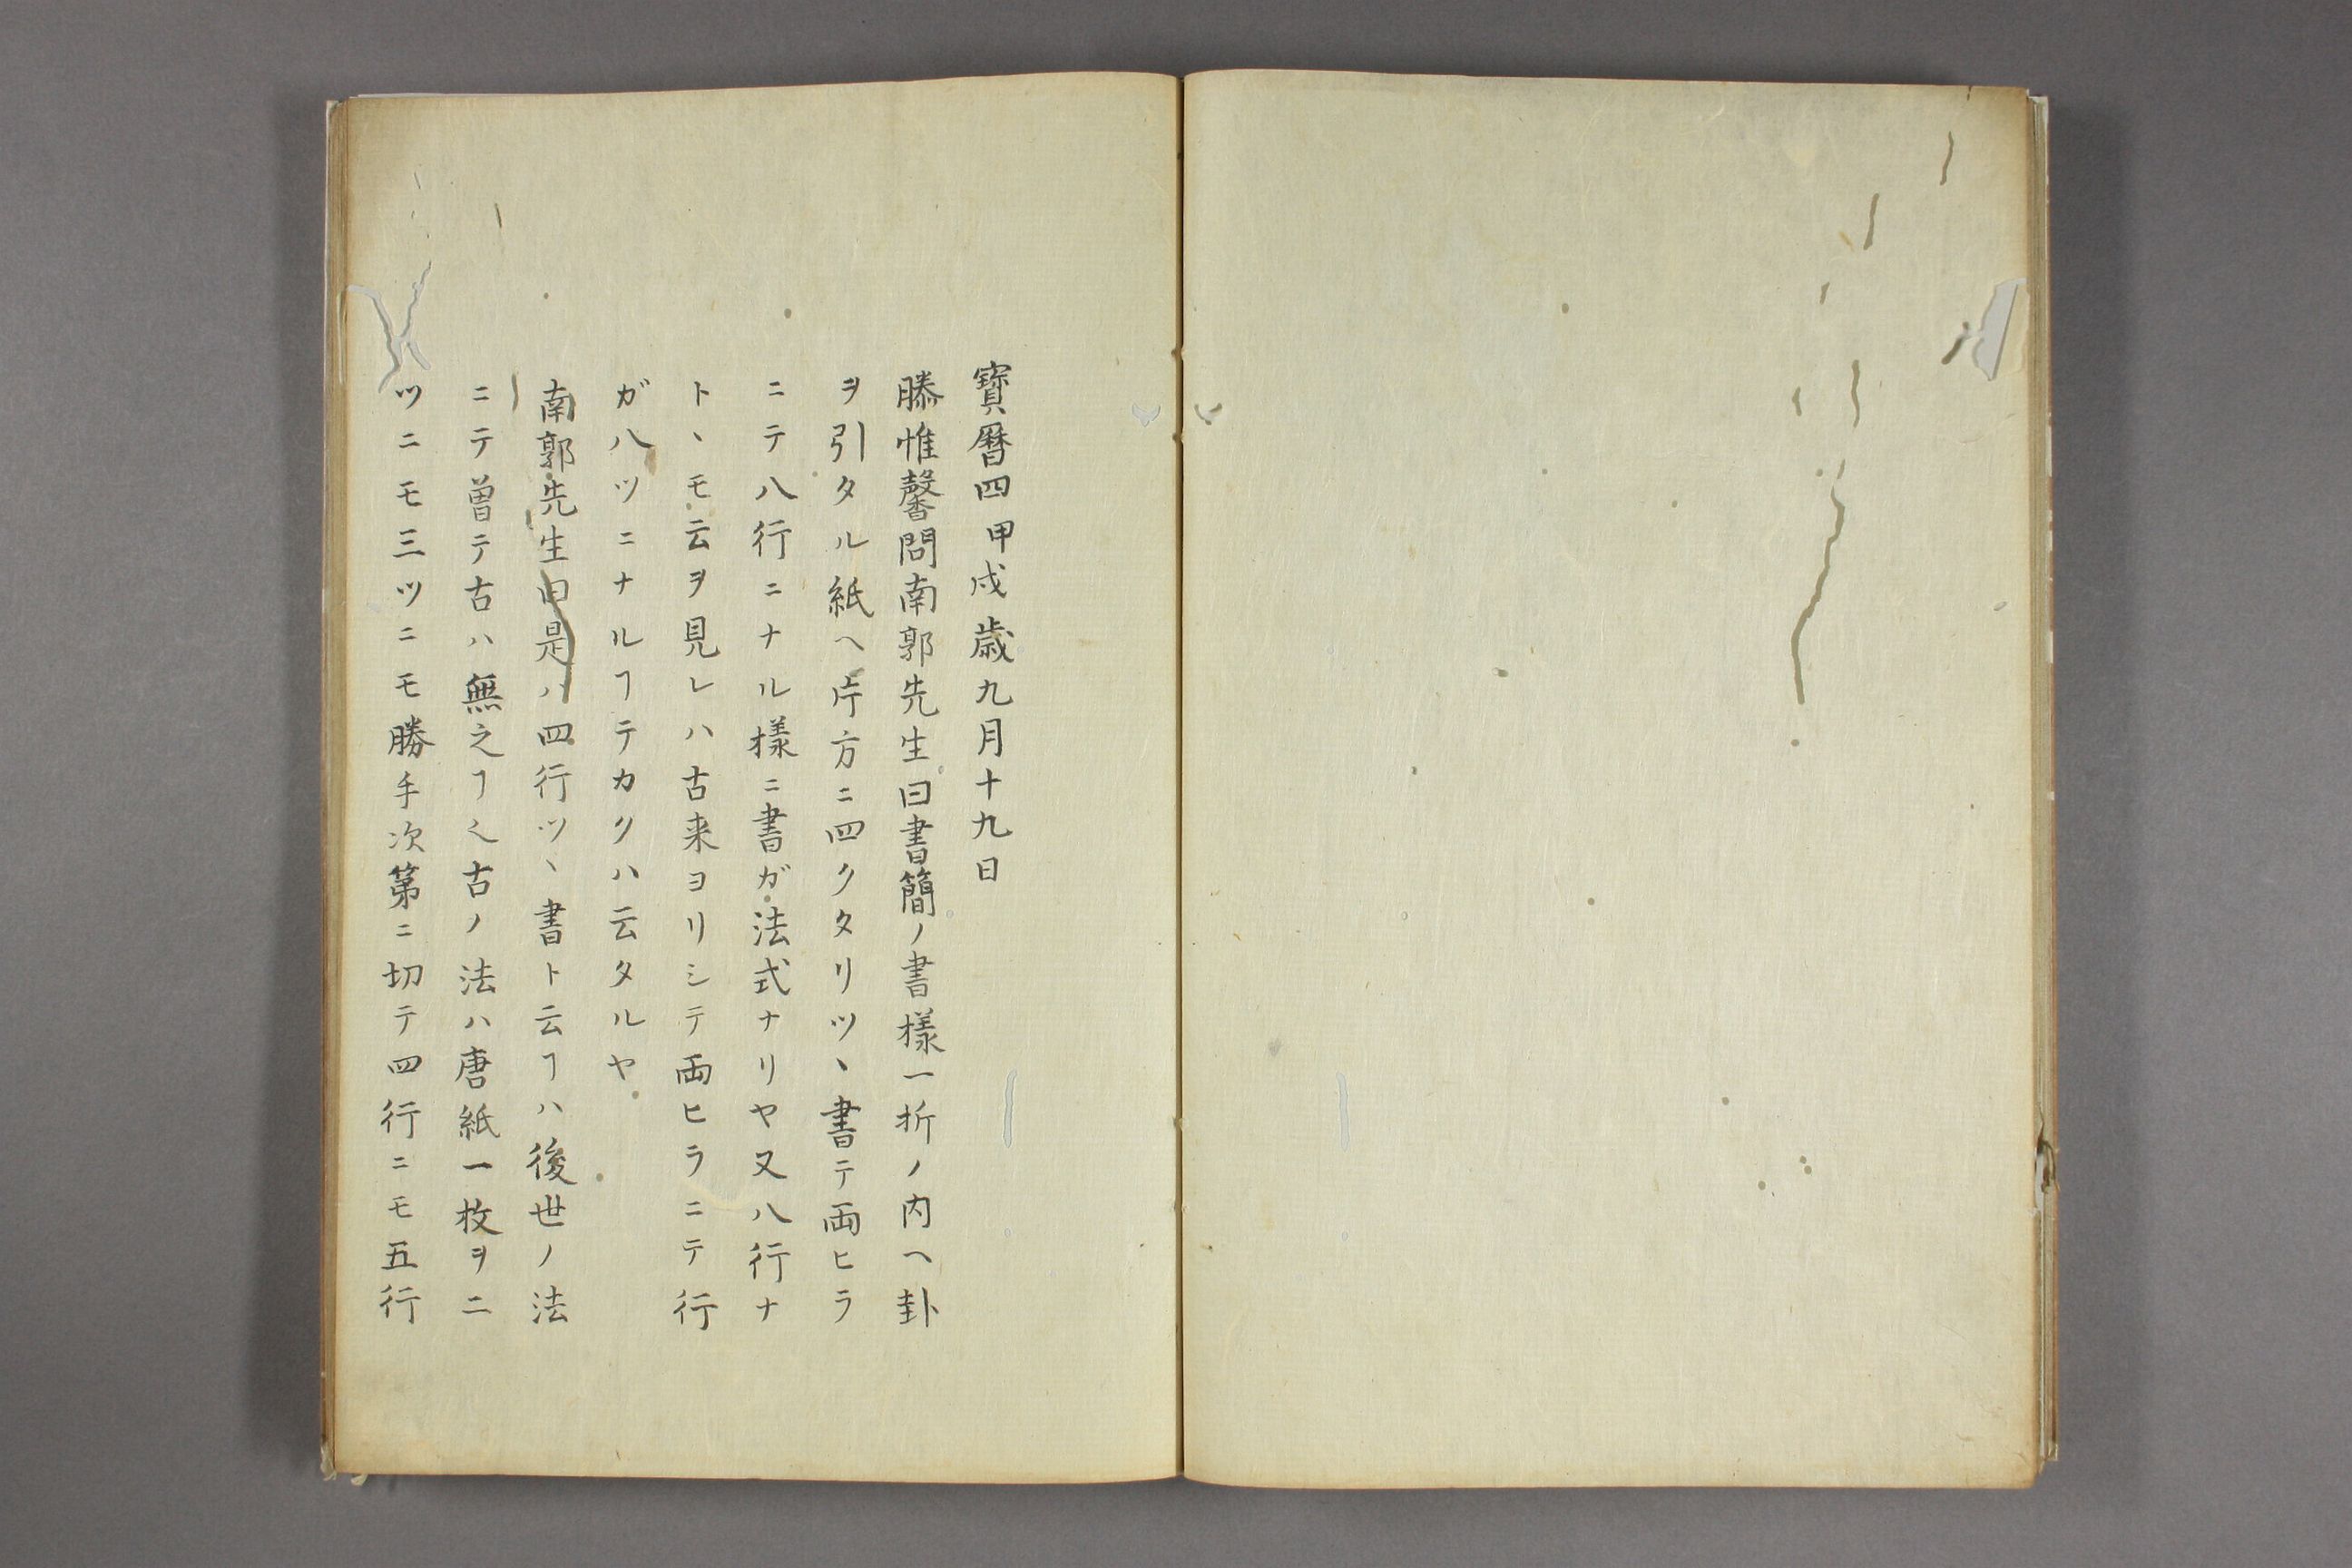 寳暦四甲戌歳九月十九日
滕惟馨問南郭先生曰書簡ノ書様一折ノ内ヘ卦
ヲ引タル紙ヘ片方ニ四クタリツヽ書テ両ヒラ
ニテ八行ニナル様ニ書ガ法式ナリヤ又八行ナ
トヽモ云ヲ見レハ古来ヨリシテ両ヒラニテ行
ガ八ツニナルヿテカクハ云タルヤ
南郭先生曰是ハ四行ツヽ書ト云ヿハ後世ノ法
ニテ曽テ古ハ無之ヿ也古ノ法ハ唐紙一枚ヲ二
ツニモ三ツニモ勝手次第ニ切テ四行ニモ五行